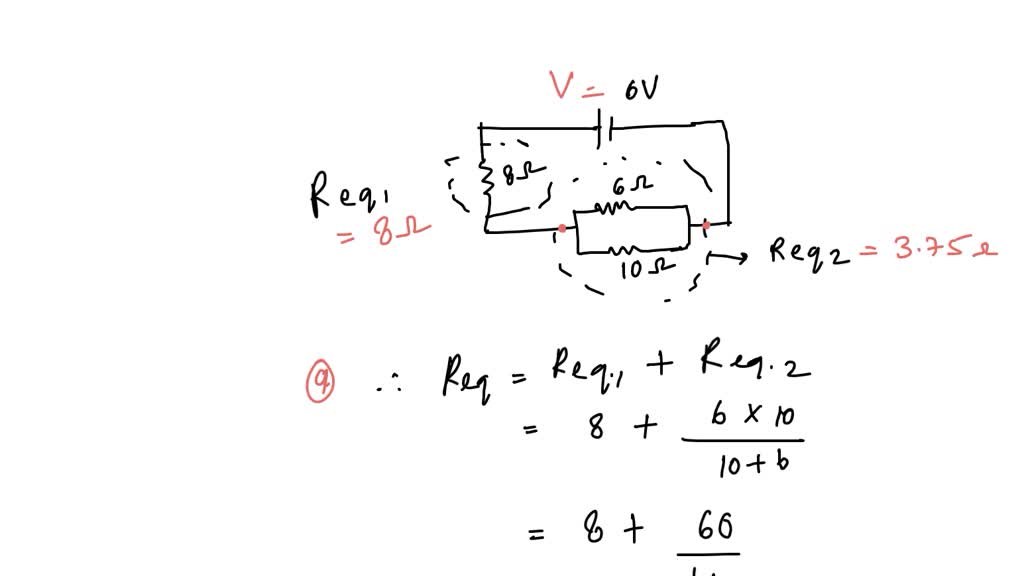 V = 6V
8Ω
6Ω
10Ω
Req1
= 8Ω
Req2 = 3.75Ω
a ∴ Req = Req.1 + Req.2
= 8 + 6 × 10 / 10+6
= 8 + 60